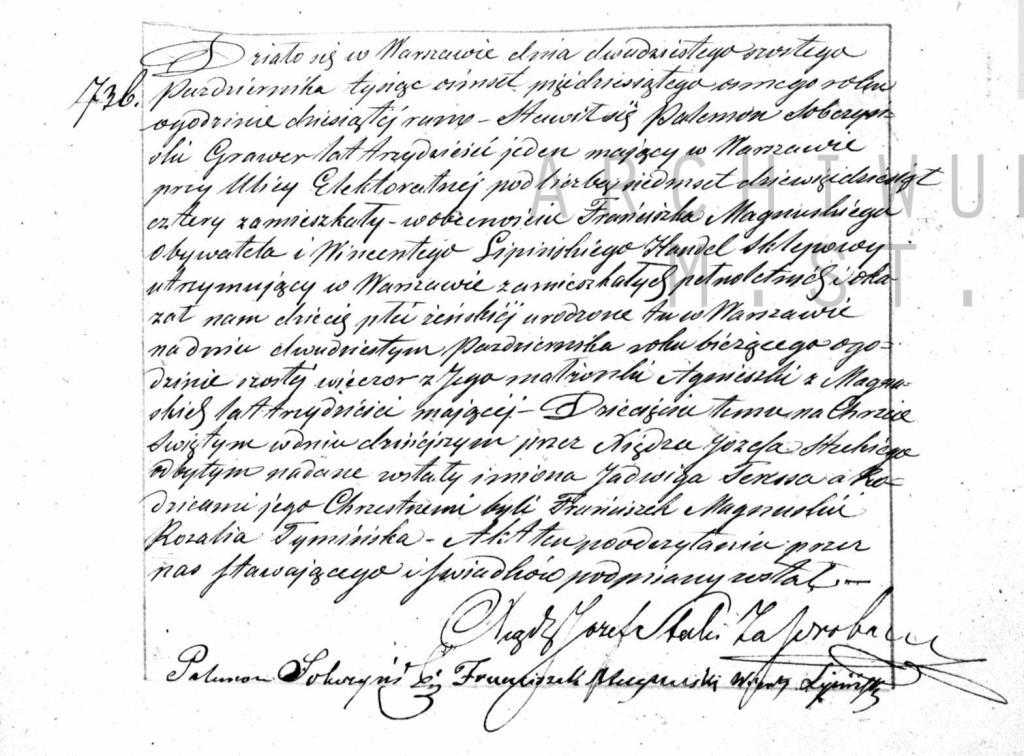 Działo się w Warszawie dnia dwudziestego szostego
736. Października tysiąc osmset pięćdziesiątego osmego roku
o godzinie dziesiątej rano – Stawił się Palemon Sobczyń=
ski Grawer lat trzydzieści jeden mający w Warszawie
przy Ulicy Elektoralnej pod liczbą siedmset dziewięćdziesiąt
cztery zamieszkały – w obecności Franciszka Magnuskiego
obywatela i Wincentego Lipińskiego Handel Sklepowy
utrzymujący w Warszawie zamieszkałych pełnoletnich i oka
zał nam dziecię płci żeńskiej urodzone tu w Warszawie
na dniu dwudziestym Października roku bieżącego o go=
dzinie szostej wieczor z Jego małżonki Agnieszki z Magnu=
skich lat trzydzieści mającej – Dziecięciu temu na Chrzcie
Świętym w dniu dzisiejszym przez Xiędza Jozefa Steckiego
odbytym nadane zostały imiona Jadwiga Teressa a Ro=
dzicami jego Chrzestnemi byli Franciszek Magnuski i
Rozalia Tymińska – Akt ten po odczytaniu przez
nas stawającego i Swiadków podpisany został. –
Xiądz Jozef Stecki Za Proboszcza
Palemon Sobczyński Franciszek Magnuski Wincenty Lipiński
ARCHIWU
M.ST.